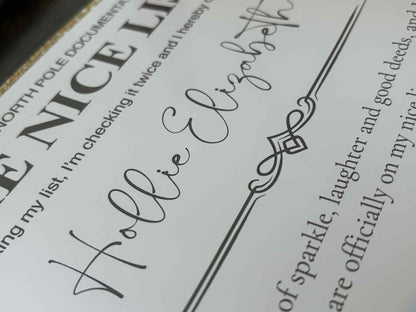 NORTH POLE DOCUMENTAT
E NICE LI
ing my list, I'm checking it twice and I hereby
Hollie Elizabeth
of sparkle, laughter and good deeds, and
are officially on my nice